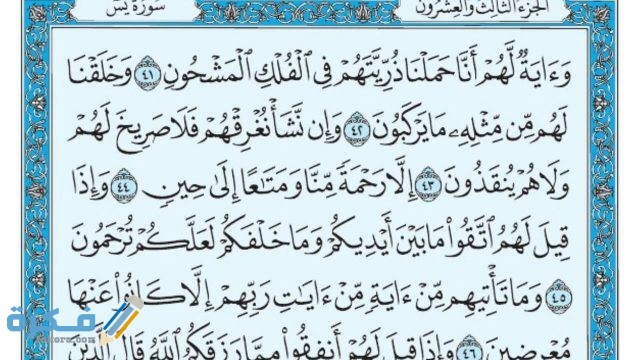 سورة يس الجزء الثالث والعشرون
وَءَايَةٌ لَّهُمْ أَنَّا حَمَلْنَا ذُرِّيَّتَهُمْ فِي الْفُلْكِ الْمَشْحُونِ ٤١ وَخَلَقْنَا
لَهُم مِّن مِّثْلِهِۦ مَا يَرْكَبُونَ ٤٢ وَإِن نَّشَأْ نُغْرِقْهُمْ فَلَا صَرِيخَ لَهُمْ
وَلَا هُمْ يُنقَذُونَ ٤٣ إِلَّا رَحْمَةً مِّنَّا وَمَتَٰعًا إِلَىٰ حِينٍ ٤٤ وَإِذَا
قِيلَ لَهُمُ اتَّقُوا۟ مَا بَيْنَ أَيْدِيكُمْ وَمَا خَلْفَكُمْ لَعَلَّكُمْ تُرْحَمُونَ
٤٥ وَمَا تَأْتِيهِم مِّنْ ءَايَةٍ مِّنْ ءَايَٰتِ رَبِّهِمْ إِلَّا كَانُوا۟ عَنْهَا
مُعْرِضِينَ ٤٦ وَإِذَا قِيلَ لَهُمْ أَنفِقُوا۟ مِمَّا رَزَقَكُمُ اللَّهُ قَالَ الَّذِينَ
فكرة